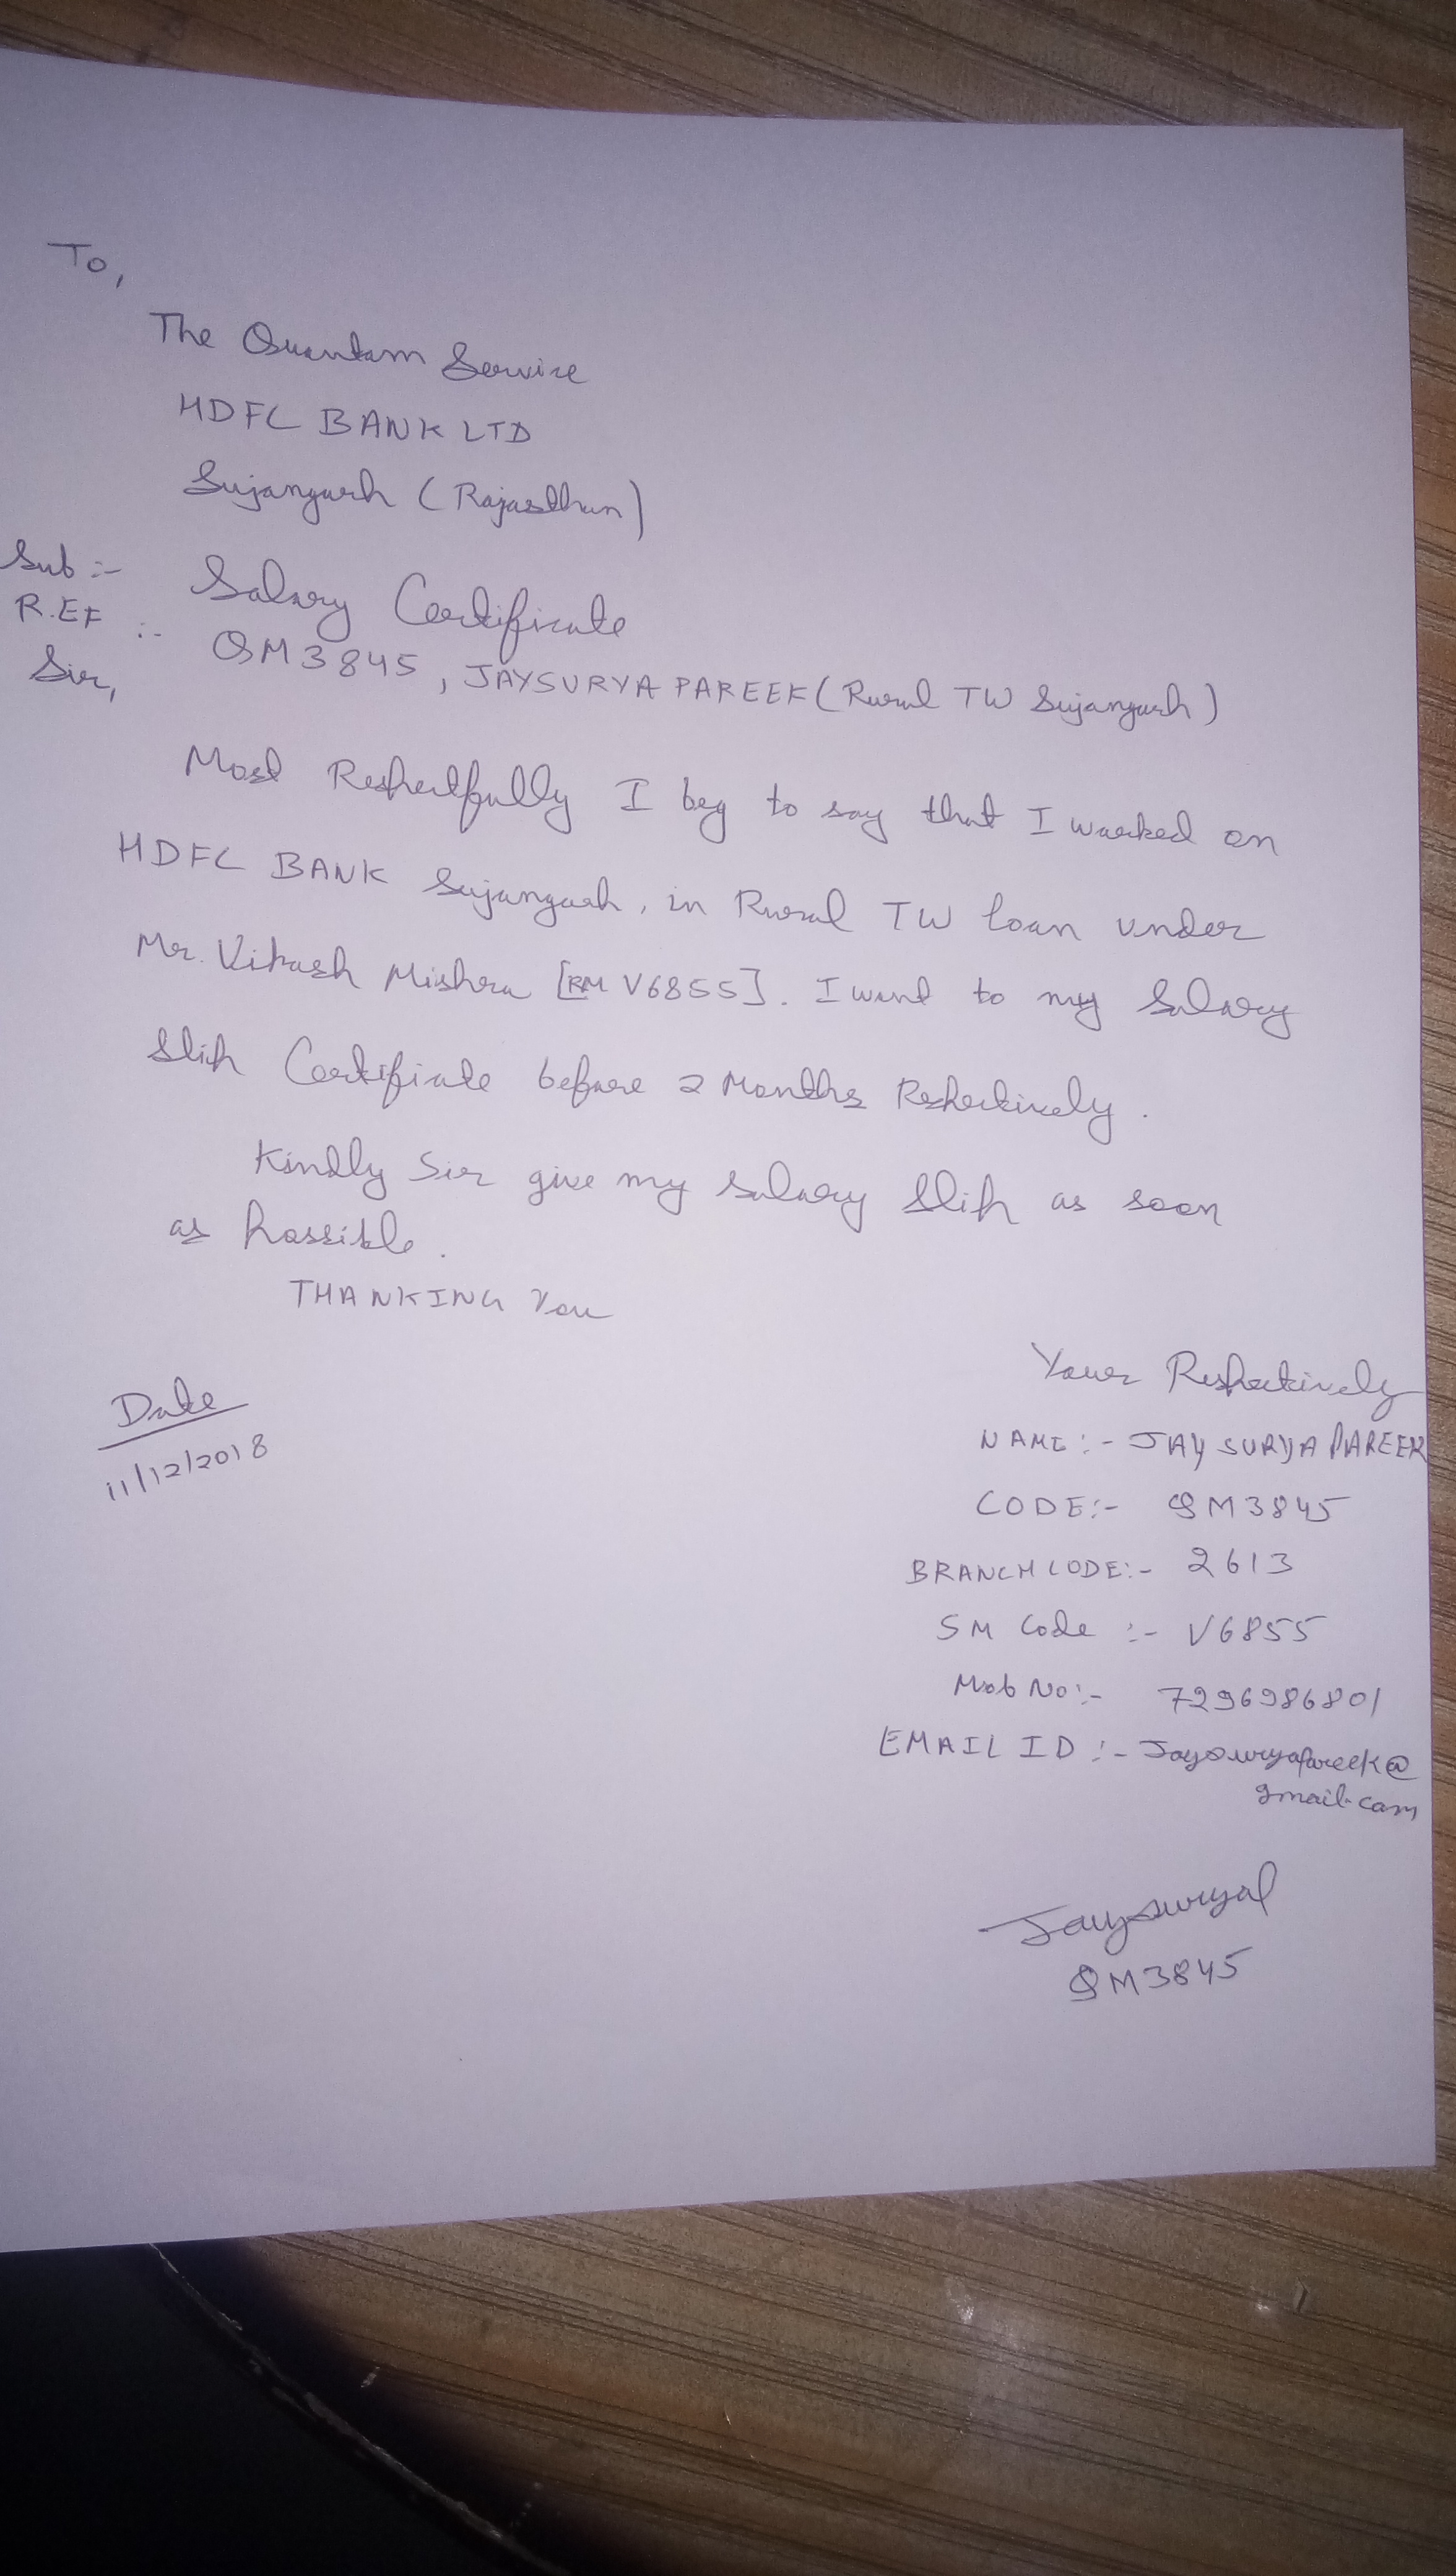 To,
The Quantam Service
HDFC BANK LTD
Sujangarh (Rajasthan)
Sub :- Salary Certificate
R.EF :- QM3845, JAYSURYA PAREEK (Rural TW Sujangarh)
Sir,
Most Respectfully I beg to say that I worked on
HDFC BANK Sujangarh, in Rural TW loan under
Mr. Vikash Mishra [RM V6855]. I want to my Salary
Slip Certificate before 2 Months Respectively.
Kindly Sir give my salary slip as soon
as possible.
THANKING You
Your Respectively
Date
11/12/2018
NAME :- JAY SURYA PAREEK
CODE :- QM3845
BRANCH CODE :- 2613
SM Code :- V6855
Mob No :- 7296986801
EMAIL ID :- Jaysuryapareek@
gmail.com
Jaysuryap
QM3845